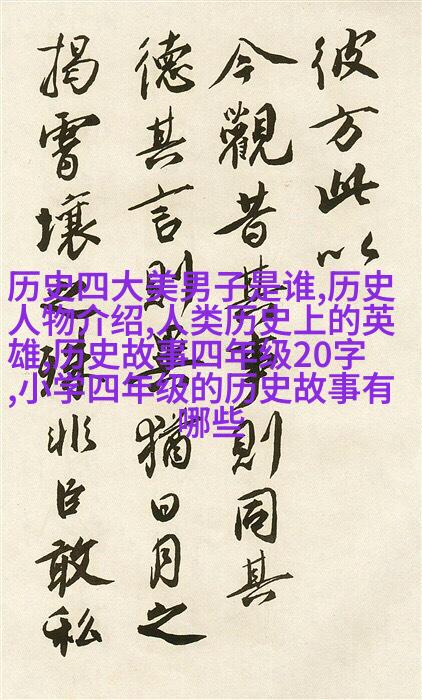 彼方此以
今觀昔其事則同其
德其言則猶日月之
揭霄壤之非臣敢私
历史四大美男子是谁,历史
人物介绍,人类历史上的英
雄,历史故事四年级20字
,小学四年级的历史故事有
哪些